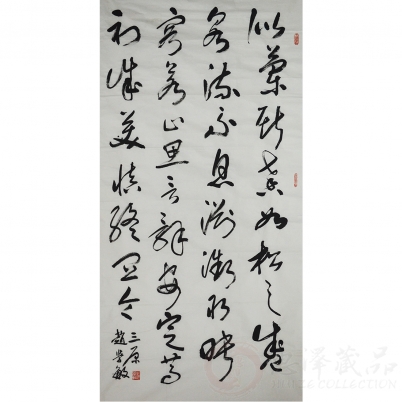 似蘭斯馨如松之盛
川流不息淵澄取映
容若止思言辭安定篤
初誠美慎終宜令
三原
趙學敏
澤藏品
COLLECTION